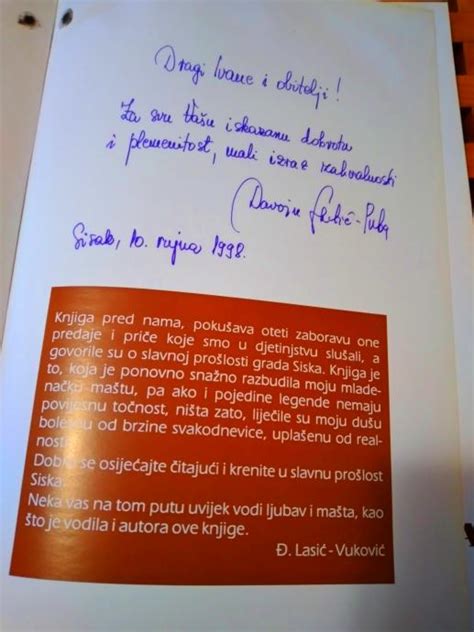 Dragi Ivane i obitelji!
Za svu Vašu iskazanu dobrotu
i plemenitost, mali izraz zahvalnosti
Sisak, 10. rujna 1998.
Knjiga pred nama, pokušava oteti zaboravu one
predaje i priče koje smo u djetinjstvu slušali, a
govorile su o slavnoj prošlosti grada Siska. Knjiga je
to, koja je ponovno snažno razbudila moju mlade-
načku maštu, pa ako i pojedine legende nemaju
povijesnu točnost, ništa zato, liječile su moju dušu
od brzine svakodnevice, uplašenu od real-
nosti
Dobro se osijećajte čitajući i krenite u slavnu prošlost
Siska.
Neka vas na tom putu uvijek vodi ljubav i mašta, kao
što je vodila i autora ove knjige.
Đ. Lasić-Vuković